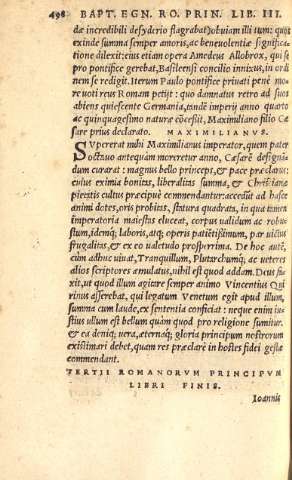 498 BAPT. EGN. RO. PRIN. LIB. III.
dæ incredibili desyderio flagrabat)obuiam illi sum: quo
exinde summa semper amoris, ac beneuolentiæ significa-
tione dilexit: eius etiam opera Amedeus Allobrox, qui se
pro pontifice gerebat, Basileensi concilio innixus, in ordi
nem se redigit. Iterum Paulo pontifice priuati pene mo
re uoti reus Romam petijt: quo damnatus retro ad suos
abiens quiescente Germania, tandẽ imperij anno quarto
ac quinquagesimo natura cõcessit, Maximiliano filio Cæ
sare prius declarato. MAXIMILIANVS.
Svpererat mihi Maximilianus imperator, quem pater
octauo antequàm moreretur anno, Cæsarẽ designã
dum curarat: magnus bello princeps, & pace præclarus:
cuius eximia bonitas, liberalitas summa, & Christianæ
pietatis cultus præcipuè commendantur: accedũt ad hasce
animi dotes, oris probitas, statura quadrata, in qua tamen
imperatoria maiestas eluceat, corpus ualidum ac robus
stum, idemq; laboris, atq; operis patiẽtißimum, par uictus
frugalitas, & ex eo ualetudo prosperrima. De hoc autẽ,
cùm adhuc uiuat, Tranquillum, Plutarchumq; ac ueteres
alios scriptores æmulatus, nihil est quod addam. Deus fa
xit, ut quod illum agitare semper animo Vincentius Qui
rinus asserebat, qui legatum Venetum egit apud illum,
summa cum laude, ex sententia conficiat: neque enim iu-
stius ullum est bellum quàm quod pro religione sumitur.
& ea deniq; uera, æternaq; gloria principum nostrorum
existimari debet, quam res præclarè in hostes fidei gestæ
commendant.
TERTII ROMANORVM PRINCIPVM
LIBRI FINIS.
Ioannis